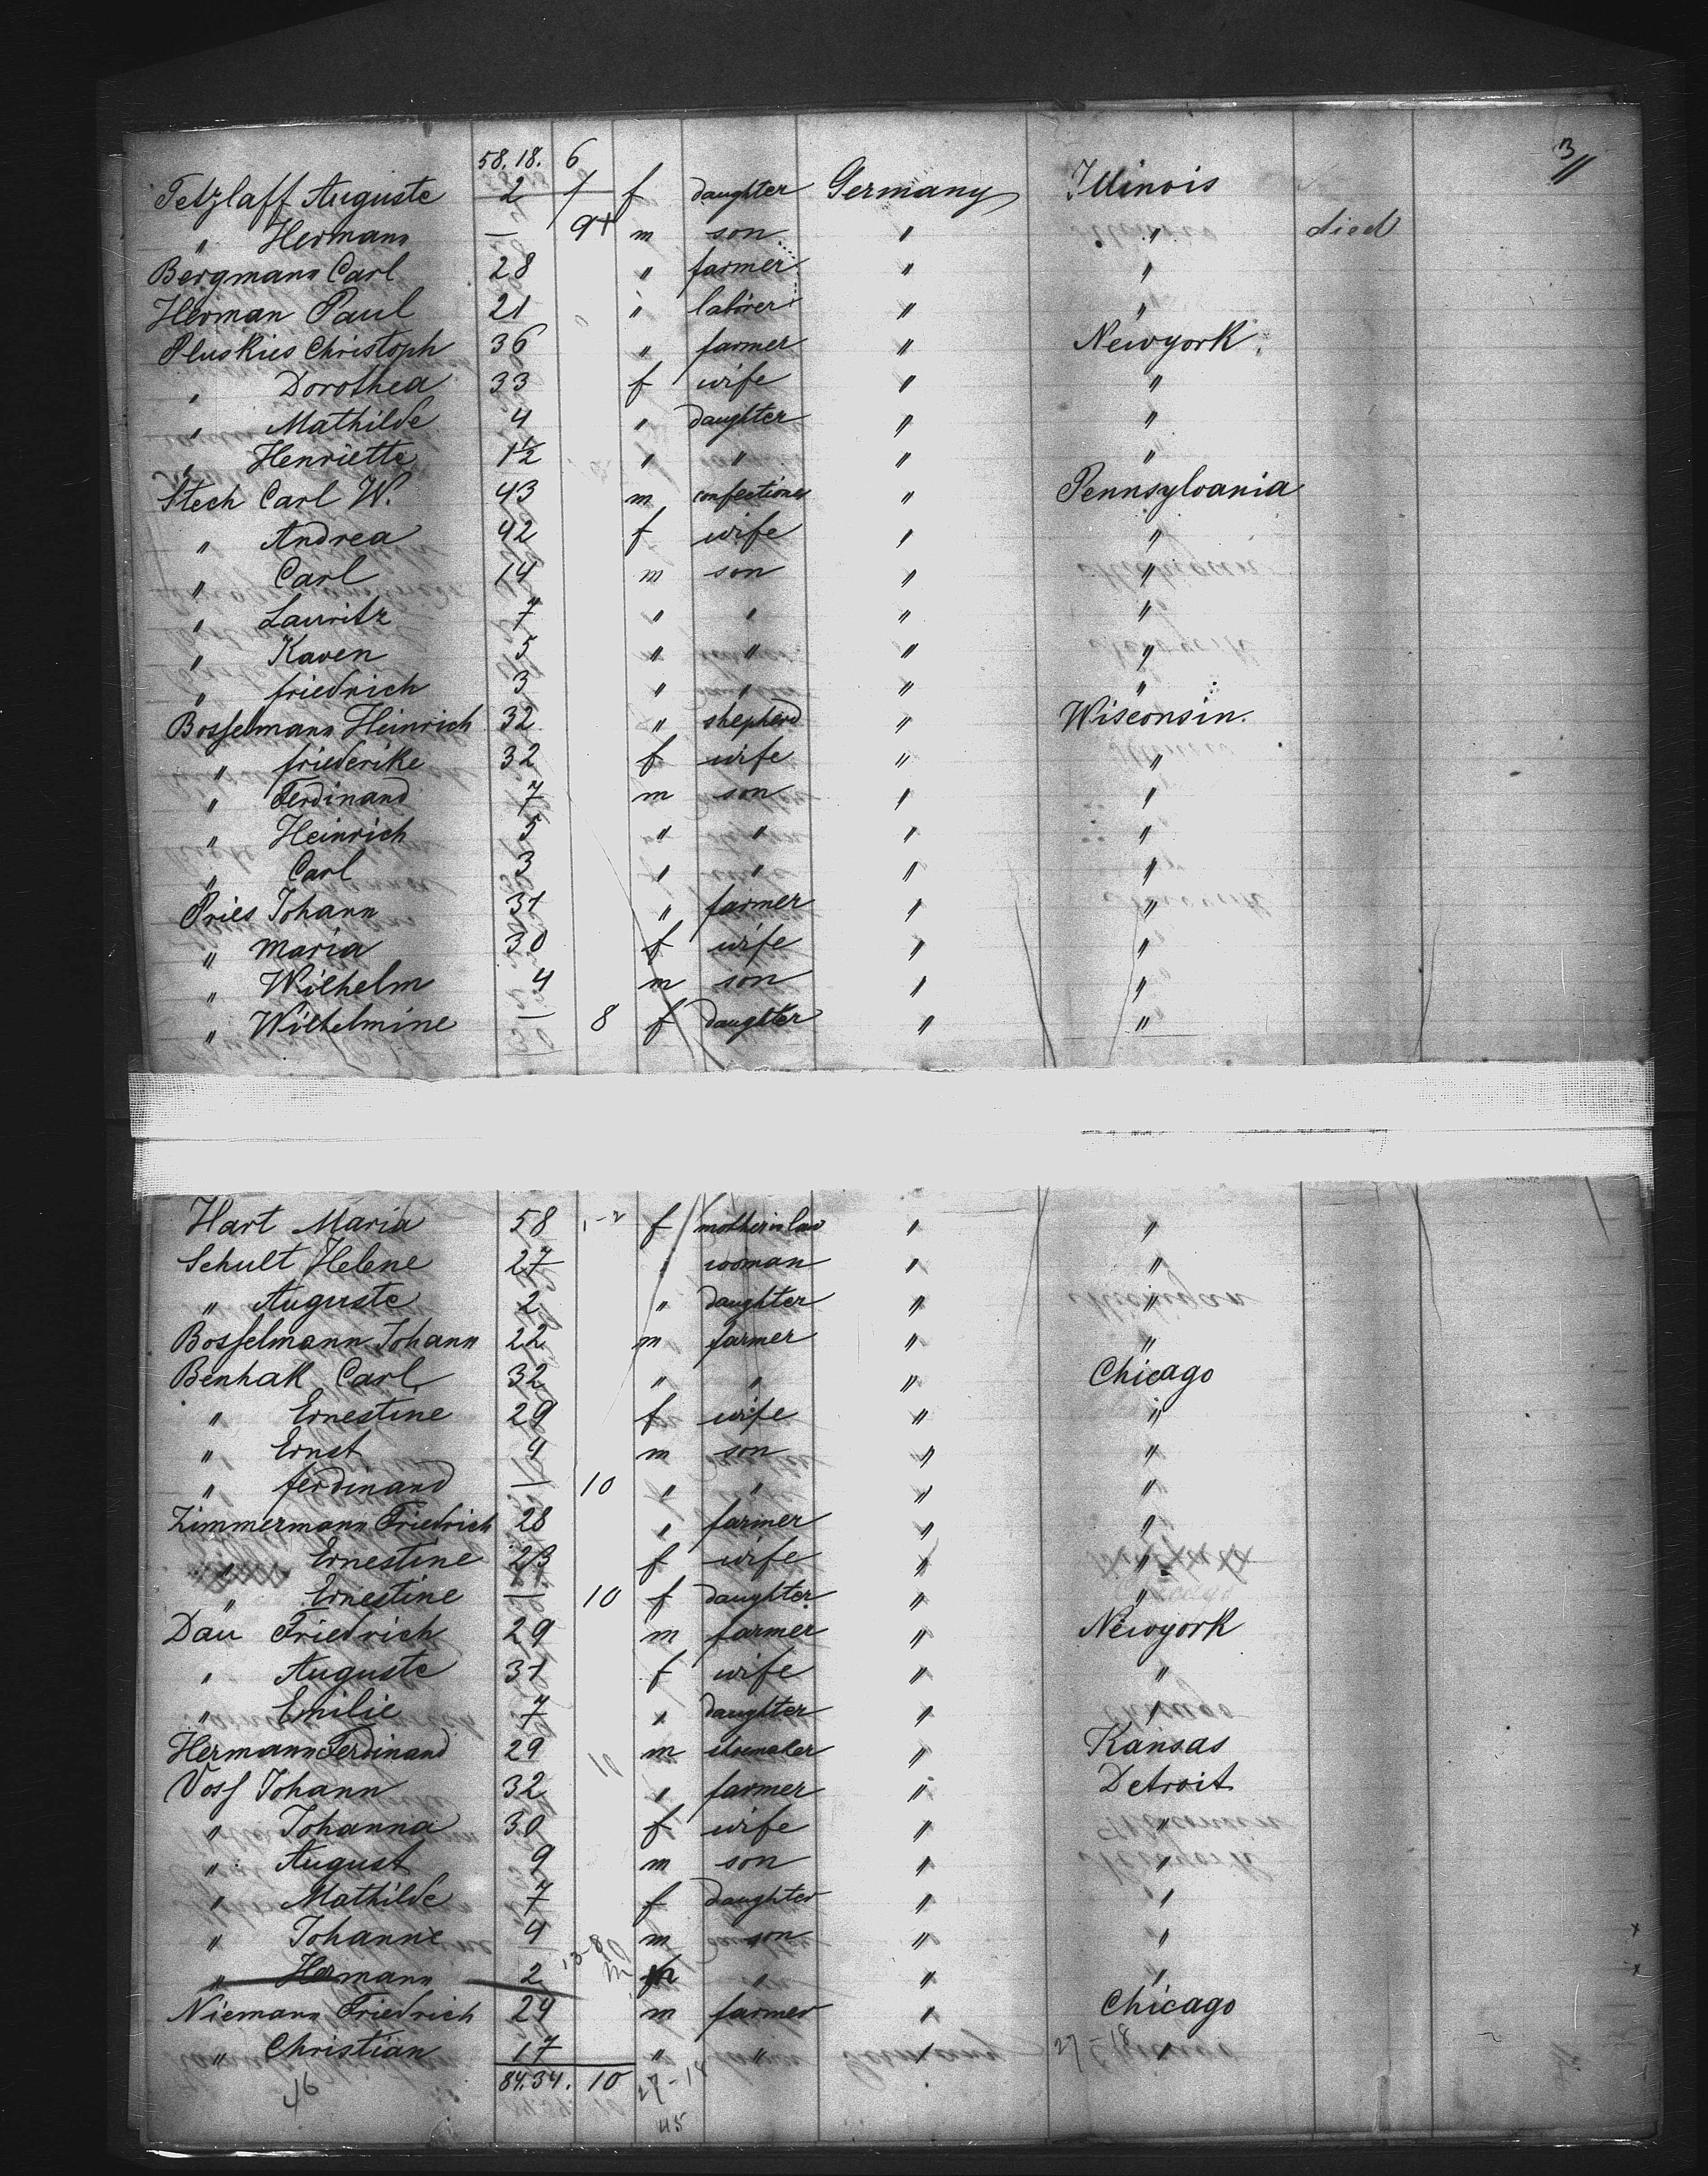 3
58. 18. 6
Tetzlaff Auguste 2 f daughter Germany Illinois
" Hermann — 9+ m son " " died
Bergmann Carl 28 " farmer " "
Herman Paul 21 " laborer " "
Pluskies Christoph 36 " farmer " Newyork
" Dorothea 33 f wife " "
" Mathilde 4 " daughter " "
" Henriette 1½ " " " "
Stech Carl W. 43 m confectioner " Pennsylvania
" Andrea 42 f wife " "
" Carl 14 m son " "
" Lauritz 7 " " " "
" Karen 5 " " " "
" friedrich 3 " " " "
Bosselmann Heinrich 32 " shepherd " Wisconsin.
" friederike 32 f wife " "
" Ferdinand 7 m son " "
" Heinrich 5 " " " "
" Carl 3 " " " "
Pries Johann 31 " farmer " "
" Maria 30 f wife " "
" Wilhelm 4 m son " "
" Wilhelmine — 8 f daughter " "
Hart Maria 58 f mother in law " "
Schult Helene 27 woman " "
" Auguste 2 " daughter " "
Bosselmann Johann 22 m farmer " "
Benhak Carl 32 " " " Chicago
" Ernestine 29 f wife " "
" Ernst 4 m son " "
" ferdinand — 10 " " " "
Zimmermann Friedrich 28 " farmer " "
" Ernestine 23 f wife " "
" Ernestine — 10 f daughter " "
Dau Friedrich 29 m farmer " Newyork
" Auguste 31 f wife " "
" Emilie 7 " daughter " "
Hermann Ferdinand 29 m shoemaker " Kansas
Voss Johann 32 " farmer " Detroit
" Johanna 30 f wife " "
" August 9 m son " "
" Mathilde 7 f daughter " "
" Johann 4 m son " "
" Hermann 2 m " " "
Niemann Friedrich 24 m farmer " Chicago
" Christian 17 " " " "
27-18
84. 34. 10 27-18
46
45